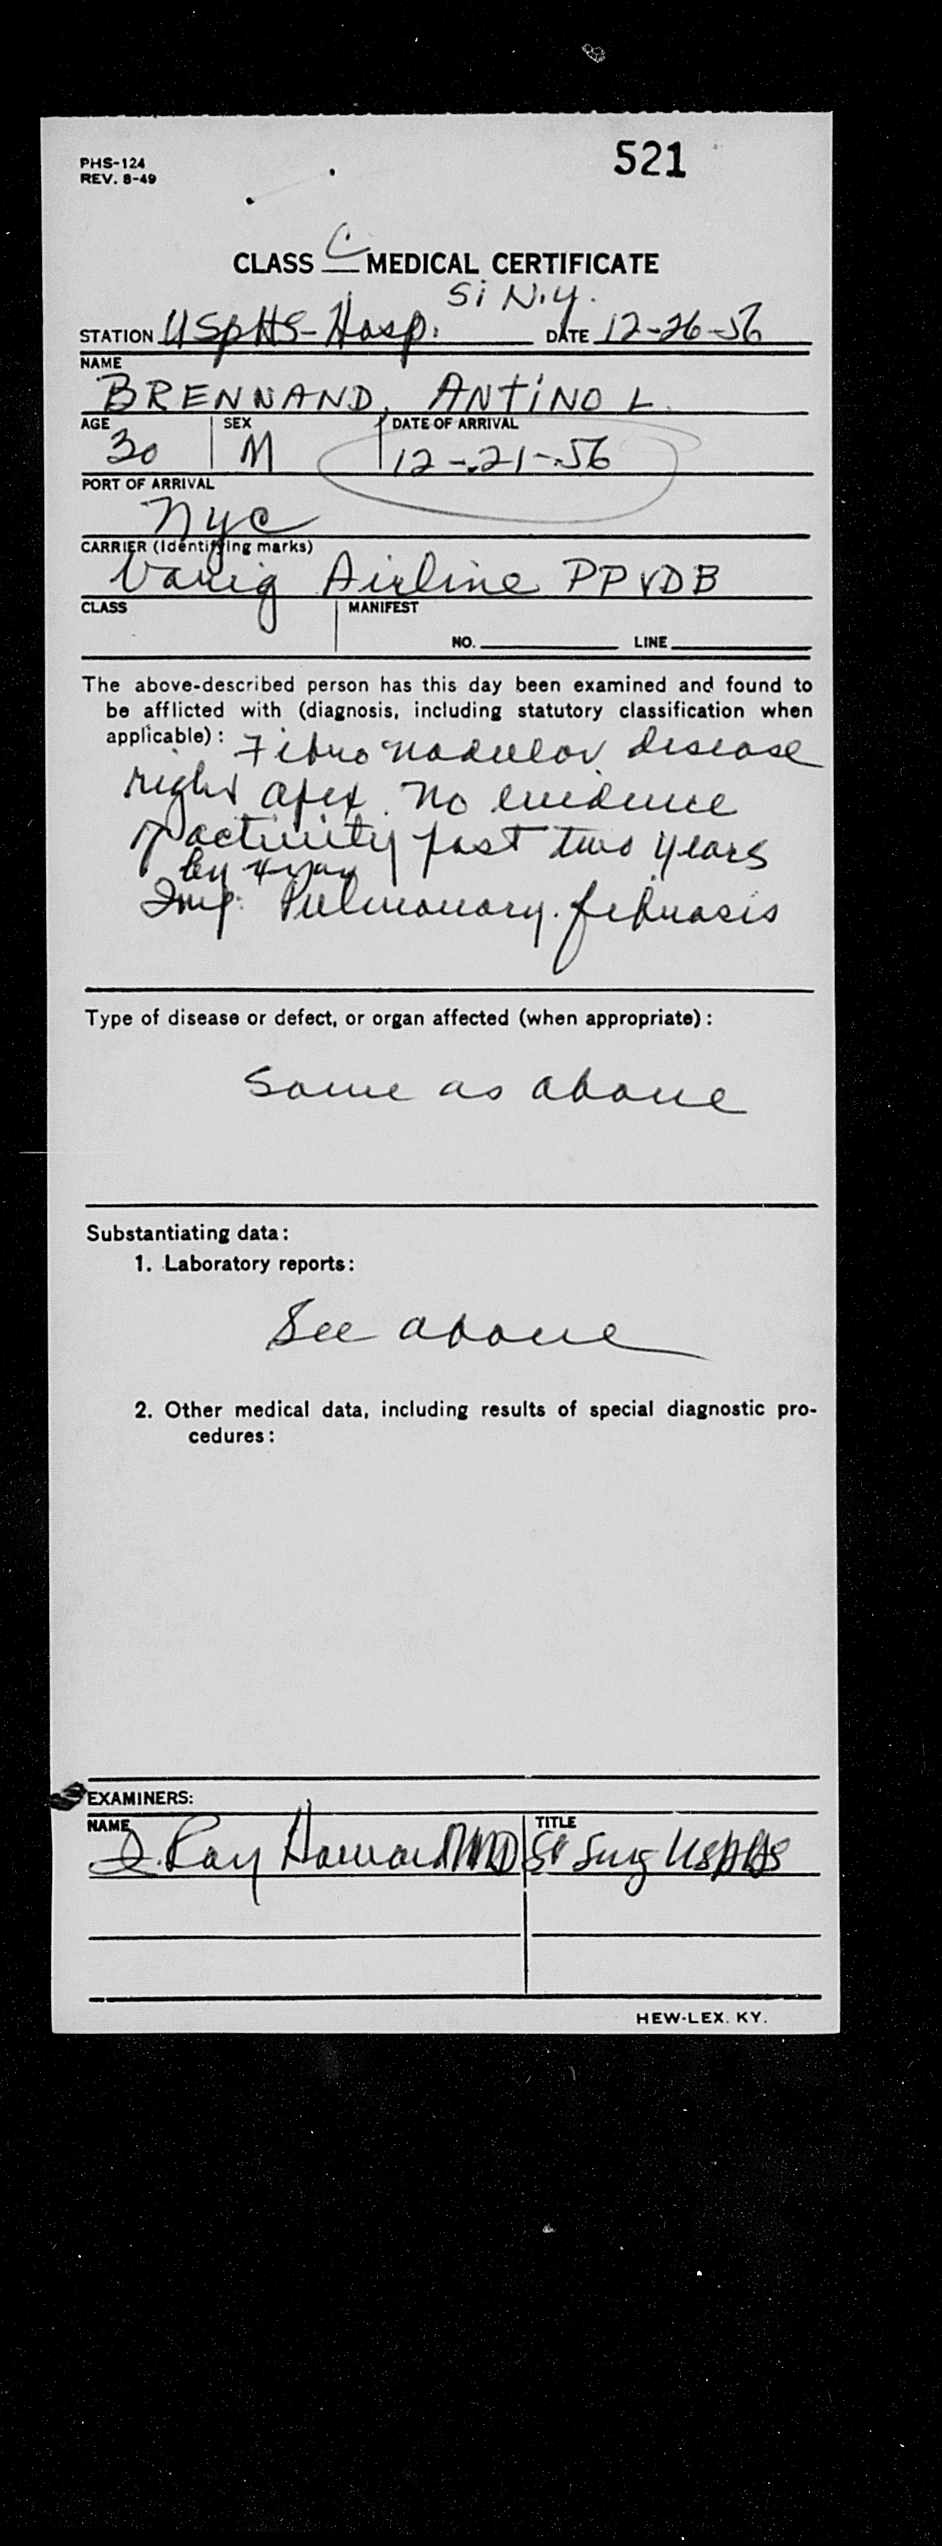 PHS-124
REV. 8-49
521
CLASS C MEDICAL CERTIFICATE
SI N.Y.
STATION USPHS-Hosp. DATE 12-26-56
NAME
BRENNAND, ANTINO L.
AGE SEX DATE OF ARRIVAL
30 M 12-21-56
PORT OF ARRIVAL
NYC
CARRIER (Identifying marks)
Varig Airline PPVDB
CLASS MANIFEST
NO. LINE
The above-described person has this day been examined and found to
be afflicted with (diagnosis, including statutory classification when
applicable): Fibro nodular disease
right apex. No evidence
of activity past two years
by xray
Imp: Pulmonary fibrosis
Type of disease or defect, or organ affected (when appropriate):
Same as above
Substantiating data:
1. Laboratory reports:
See above
2. Other medical data, including results of special diagnostic pro-
cedures:
EXAMINERS:
NAME TITLE
Ray Howard MD Sr Surg USPHS
HEW-LEX. KY.